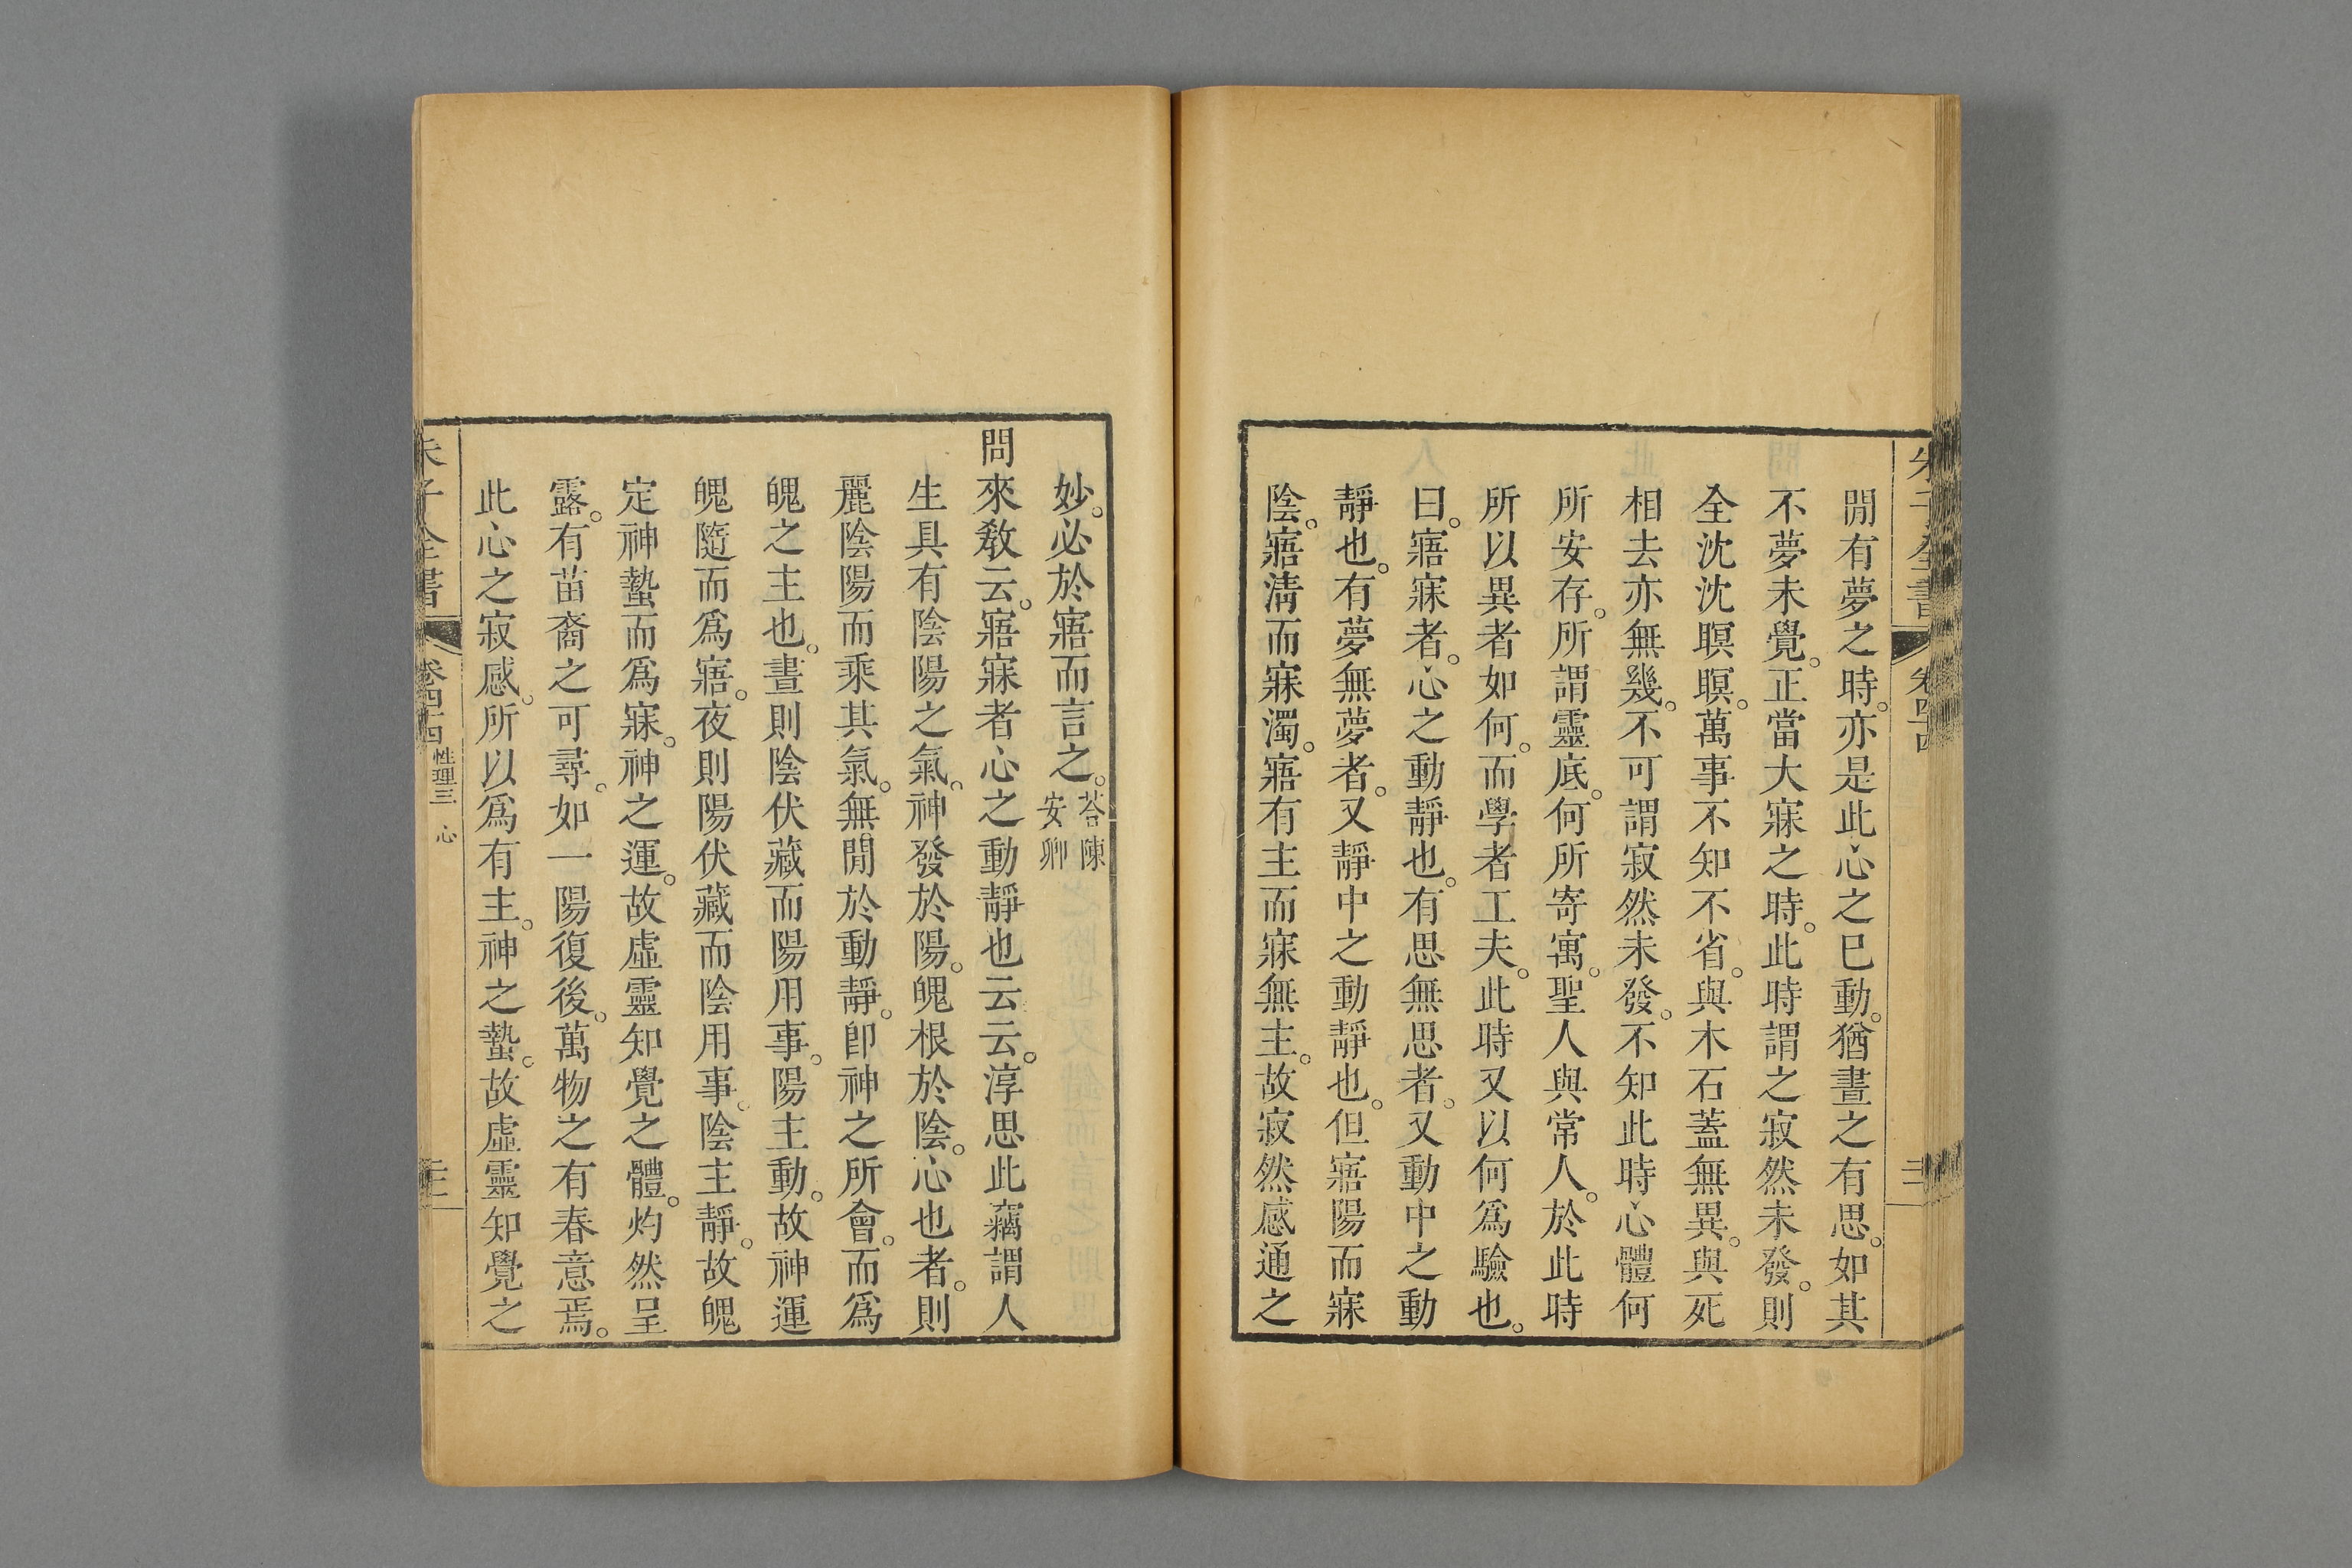 朱子全書 卷四十四
閒有夢之時。亦是此心之已動。猶晝之有思。如其
不夢未覺。正當大寐之時。此時謂之寂然未發。則
全沈沈瞑瞑。萬事不知不省。與木石蓋無異。與死
相去亦無幾。不可謂寂然未發。不知此時心體何
所安存。所謂靈底。何所寄寓。聖人與常人。於此時
所以異者如何。而學者工夫。此時又以何爲驗也。
曰。寤寐者。心之動靜也。有思無思者。又動中之動
靜也。有夢無夢者。又靜中之動靜也。但寤陽而寐
陰。寤淸而寐濁。寤有主而寐無主。故寂然感通之
妙。必於寤而言之。荅陳安卿
問來敎云。寤寐者心之動靜也云云。淳思此竊謂人
生具有陰陽之氣。神發於陽。魄根於陰。心也者。則
麗陰陽而乘其氣。無閒於動靜。卽神之所會。而爲
魄之主也。晝則陰伏藏而陽用事。陽主動。故神運
魄隨而爲寤。夜則陽伏藏而陰用事。陰主靜。故魄
定神蟄而爲寐。神之運。故虛靈知覺之體。灼然呈
露。有苗裔之可尋。如一陽復後。萬物之有春意焉。
此心之寂感。所以爲有主。神之蟄。故虛靈知覺之
朱子全書 卷四十四 性理三 心